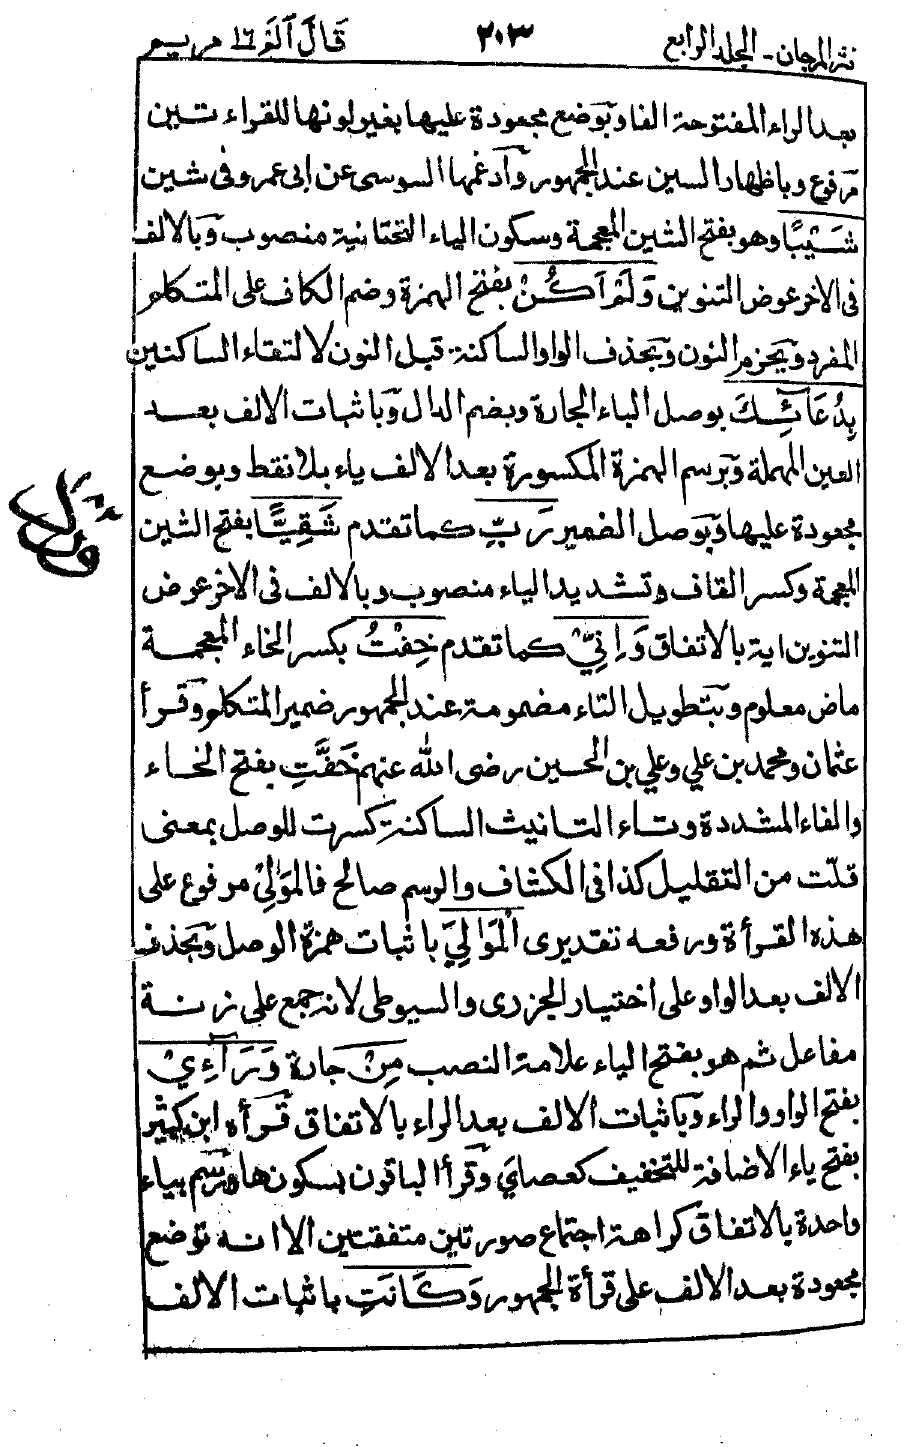 نثر المرجان - الجلد الرابع ٢٠٣ قَالَ اَلَمْ ١٦ مريم
بعد الراء المفتوحة الفا وَبوَضع مجعودة عليها بغير لونها للقراءتين
مرفوع وباظهار السين عند الجمهور وَاَدغمها السوسى عن ابى عمرو فى شين
شَيْبًا وهو بفتح الشين المعجمة وسكون الياء التحتانية منصوب وَبالالف
فى الاخر عوض التنوين وَلَمْ اَكُنْ بفتح الهمزة وضم الكاف على المتكلم
المفرد وَبجزم النون وَبحذف الواو الساكنة قبل النون لالتقاء الساكنين
بِدُعَائِكَ بوصل الباء الجارة وبضم الدال وَباثبات الالف بعد
العين المهملة وَبرسم الهمزة المكسورة بعد الالف ياء بلا نقط وبوضع
مجعودة عليها وَبوصل الضمير رَبِّ كما تقدم شَقِيًّا بفتح الشين
المعجمة وكسر القاف وتشديد الياء منصوب وبالالف فى الاخر عوض
التنوين اية بالاتفاق وَاِنِّيْ كما تقدم خِفْتُ بكسر الخاء المعجمة
ماض معلوم وَبتطويل التاء مضمومة عند الجمهور ضمير المتكلم وقرأ
عثمان ومحمد بن علي وعلي بن الحسين رضى الله عنهم خَفَّتِ بفتح الخاء
والفاء المشددة وتاء التانيث الساكنة كسرت للوصل بمعنى
قلّت من التقليل كذا فى الكشاف والرسم صالح فالمَوٰلِيْ مرفوع على
هذه القرأة ورفعه تقديرى الْمَوَالِيَ باثبات همزة الوصل وَبحذف
الالف بعد الواو على اختيار الجزرى والسيوطى لانه جمع على زنة
مفاعل ثم هو بفتح الياء علامة النصب مِنْ جارة وَرَآءِيْ
بفتح الواو والراء وَباثبات الالف بعد الراء بالاتفاق قَرأه ابن كثير
بفتح ياء الاضافة للتخفيف كعصايَ وَقرأ الباقون بسكونها وَرسم بياء
واحدة بالاتفاق كراهة اجتماع صورتين متفقتين الا انه توضع
مجعودة بعد الالف على قرأة الجمهور وَكَانَتِ باثبات الالف